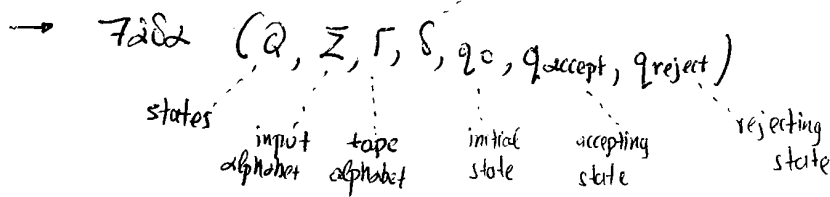 → 7άδα (Q, Σ, Γ, δ, q0, qaccept, qreject)
states input alphabet tape alphabet initial state accepting state rejecting state